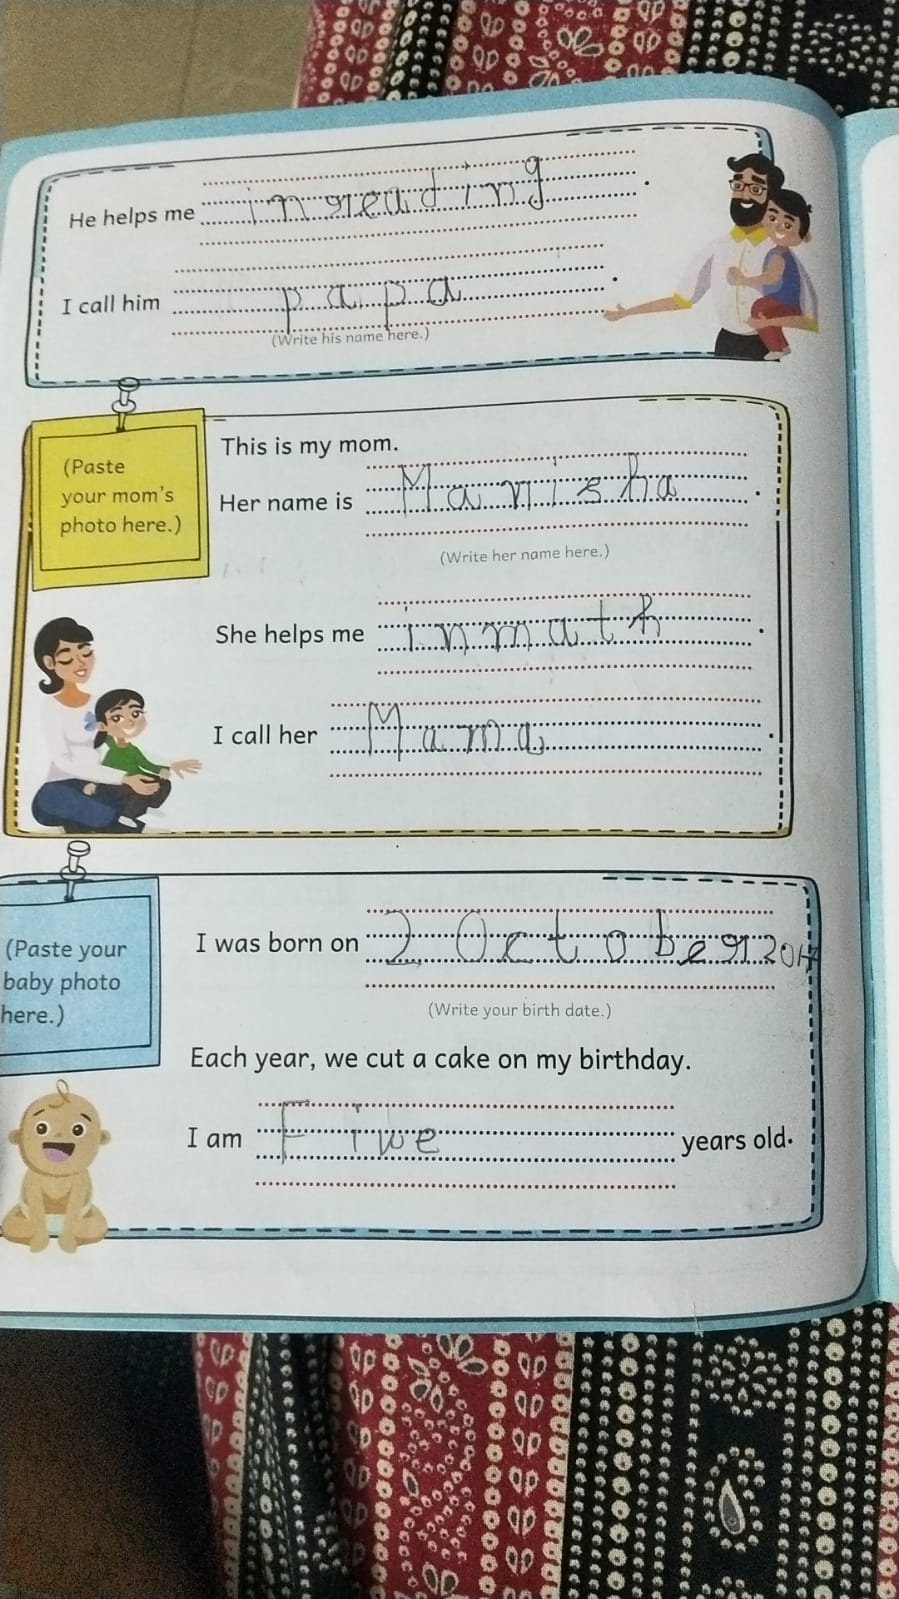 He helps me in reading.
I call him papa.
(Write his name here.)
(Paste
your mom's
photo here.)
This is my mom.
Her name is Manisha.
(Write her name here.)
She helps me in math.
I call her Mama.
(Paste your
baby photo
here.)
I was born on 2 October 2017
(Write your birth date.)
Each year, we cut a cake on my birthday.
I am Fiwe years old.